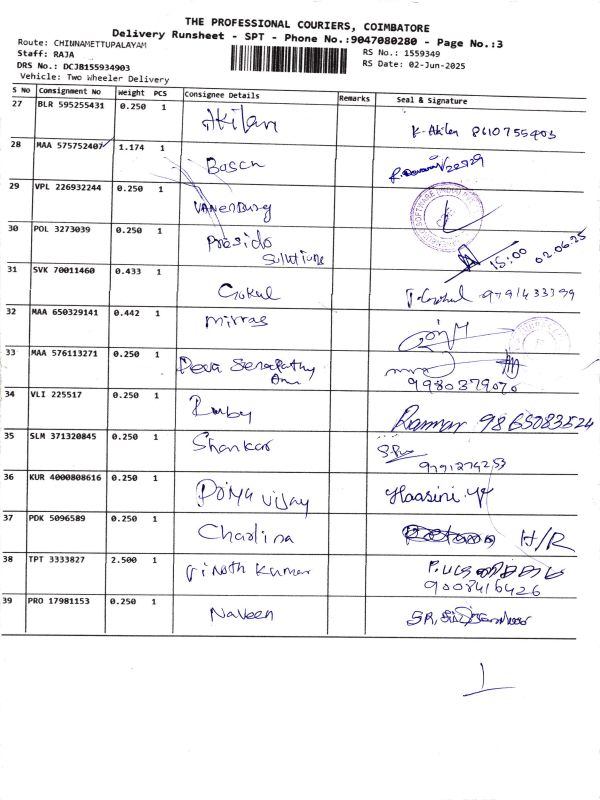 THE PROFESSIONAL COURIERS, COIMBATORE
Delivery Runsheet - SPT - Phone No.:9047080280 - Page No.:3
Route: CHINNAMETTUPALAYAM
Staff: RAJA
DRS No.: DCJB155934903
Vehicle: Two Wheeler Delivery
RS No.: 1559349
RS Date: 02-Jun-2025
S No Consignment No Weight PCS Consignee Details Remarks Seal & Signature
27 BLR 595255431 0.250 1 Akilan K. Akilan 8610755403
28 MAA 575752407 1.174 1 Bosch
29 VPL 226932244 0.250 1 Vanenburg
30 POL 3273039 0.250 1 Presido
Solutions 15:00 02.06.25
31 SVK 70011460 0.433 1 Gokul T. Gokul 9791433399
32 MAA 650329141 0.442 1 mirras
33 MAA 576113271 0.250 1 Deva Senapathy
9980379070
34 VLI 225517 0.250 1 Ruby Raman 9865083524
35 SLM 371320845 0.250 1 Shankar
9791274253
36 KUR 4000808616 0.250 1 Priya vijay Haasini.V
37 PDK 5096589 0.250 1 Charlina H/R
38 TPT 3333827 2.500 1 Vinoth Kumar
9008416426
39 PRO 17981153 0.250 1 Naveen